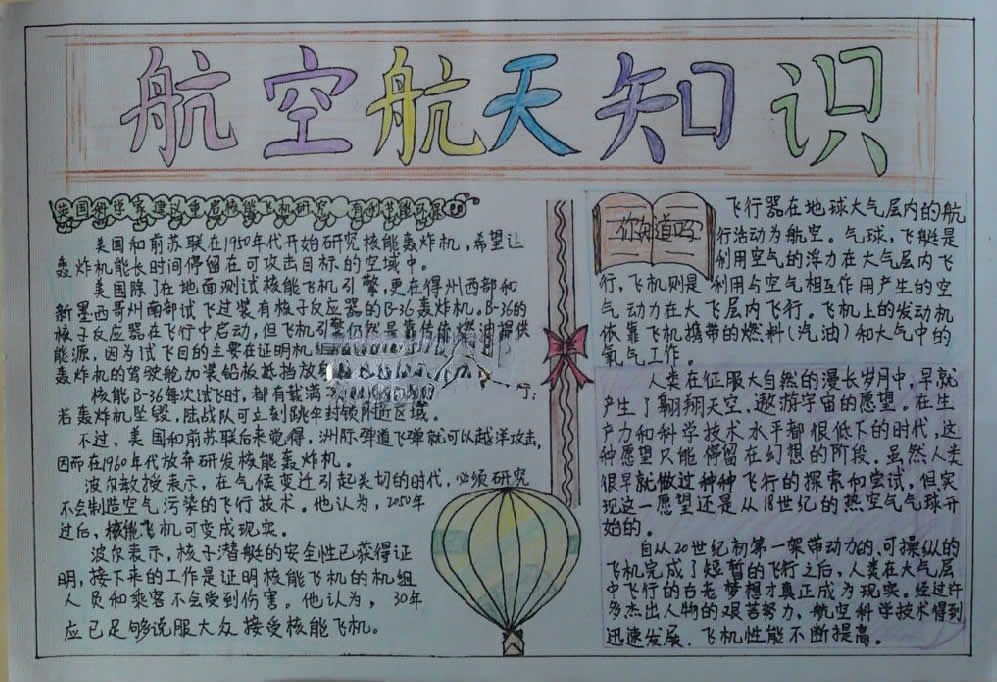 航空航天知识
英国科学家建议重启核能飞机研究 有利节能环保
美国和前苏联在1950年代开始研究核能轰炸机，希望让
轰炸机能长时间停留在可攻击目标的空域中。
美国除了在地面测试核能飞机引擎，更在得州西部和
新墨西哥州南部试飞过装有核子反应器的B-36轰炸机。B-36的
核子反应器在飞行中启动，但飞机引擎仍然是靠传统燃油提供
能源，因为试飞目的主要在证明机
轰炸机的驾驶舱加装铅板抵挡放射
核能B-36每次试飞时，都有载满
若轰炸机坠毁，陆战队可立刻跳伞封锁附近区域。
不过、美国和前苏联后来觉得，洲际弹道飞弹就可以越洋攻击，
因而在1960年代放弃研发核能轰炸机。
波尔教授表示，在气候变迁引起关切的时代，必须研究
不会制造空气污染的飞行技术。他认为，2050年
过后，核能飞机可变成现实。
波尔表示，核子潜艇的安全性已获得证
明，接下来的工作是证明核能飞机的机组
人员和乘客不会受到伤害。他认为，30年
应已足够说服大众接受核能飞机。
你知道吗?
飞行器在地球大气层内的航
行活动为航空。气球，飞艇是
利用空气的浮力在大气层内飞
行，飞机则是利用与空气相互作用产生的空
气动力在大飞层内飞行。飞机上的发动机
依靠飞机携带的燃料（汽油）和大气中的
氧气工作。
人类在征服大自然的漫长岁月中，早就
产生了翱翔天空、遨游宇宙的愿望。在生
产力和科学技术水平都很低下的时代，这
种愿望只能停留在幻想的阶段。虽然人类
很早就做过种种飞行的探索和尝试，但实
现这一愿望还是从18世纪的热空气气球开
始的。
自从20世纪初第一架带动力的、可操纵的
飞机完成了短暂的飞行之后，人类在大气层
中飞行的古老梦想才真正成为现实。经过许
多杰出人物的艰苦努力，航空科学技术得到
迅速发展，飞机性能不断提高。